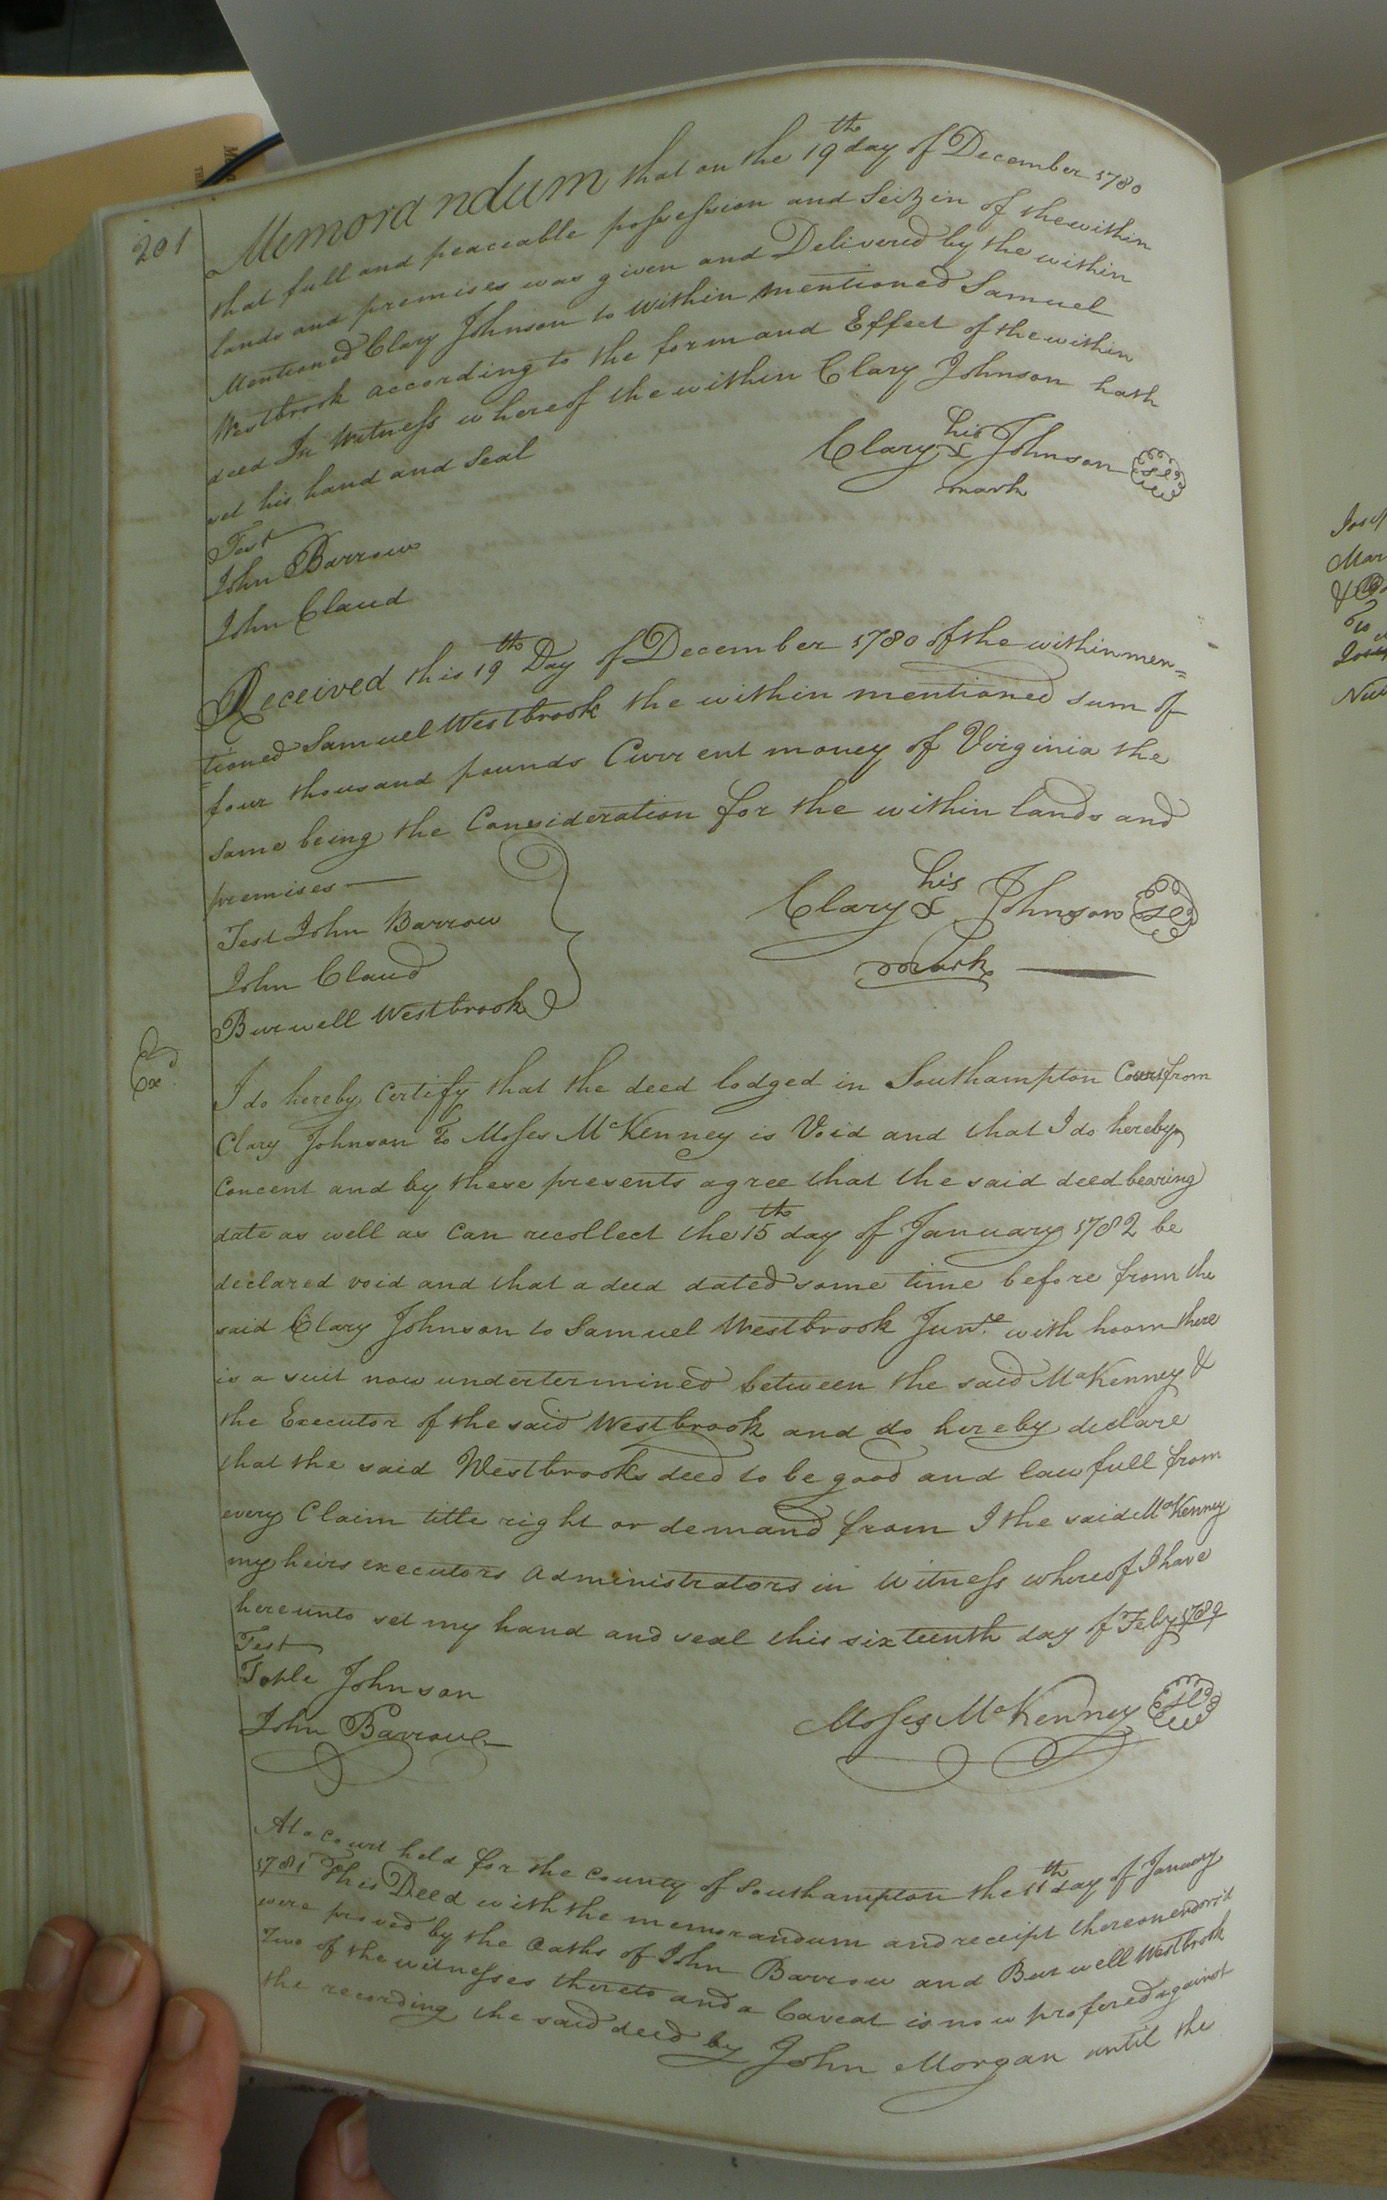 201
Memorandum that on the 19th day of December 1780
that full and peaceable possession and Seizin of the within
lands and premises was given and Delivered by the within
Mentioned Clary Johnson to within mentioned Samuel
Westbrook according to the form and Effect of the within
deed In Witness whereof the within Clary Johnson hath
set his hand and Seal
his
Clary x Johnson
mark
Test
John Barrow
John Claud
Received this 19th Day of December 1780 of the within men=
tioned Samuel Westbrook the within mentioned sum of
four thousand pounds Current money of Virginia the
same being the Consideration for the within lands and
premises
his
Clary x Johnson
mark
Test John Barrow
John Claud
Burwell Westbrook
Exd.
I do hereby Certify that the deed lodged in Southampton Court from
Clary Johnson To Moses McKenney is Void and that I do hereby
Concent and by these presents agree that the said deed bearing
date as well as Can recollect the 15th day of January 1782 be
declared void and that a deed dated some time before from the
said Clary Johnson to Samuel Westbrook with hoom there
is a suit now undertermined between the said McKenney &
the Executor of the said Westbrook and do hereby declare
that the said Westbrooks deed to be good and lawfull from
every Claim title right or demand from I the said McKenney
my heirs executors administrators in Witness whereof I have
hereunto set my hand and seal this sixteenth day of Feby
Test
Johnson
John Barrow
Moses McKenney
At a Court held for the County of Southampton the 11th day of January
1781 This Deed with the memorandum and receipt thereon endorsd
were proved by the Oaths of John Barrow and Burwell Westbrook
Two of the witnesses thereto and a Caveat is now profered against
the recording the said deed by John Morgan until the